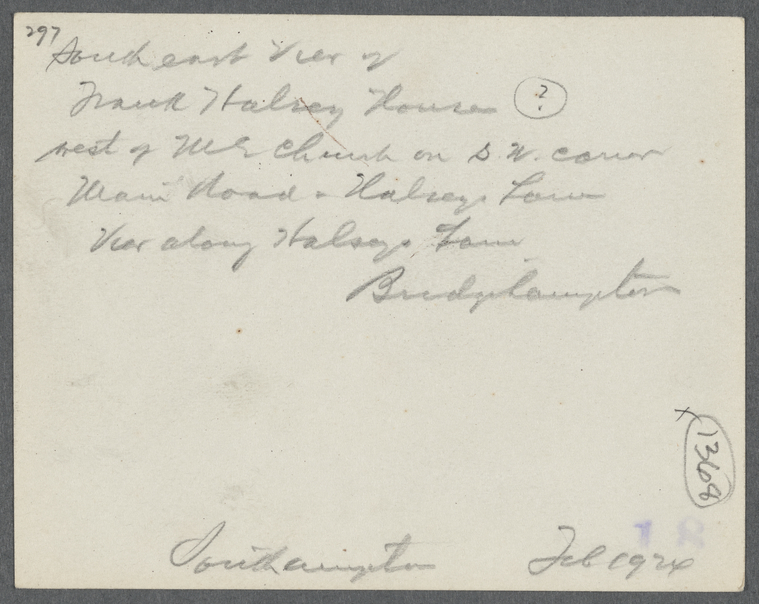 297
South east View of
Frank Halsey House ?
west of M E Church on S. W. corner
Main Road & Halseys Lane
View along Halseys Lane
Bridgehampton
x 1368
Southampton Feb 1924